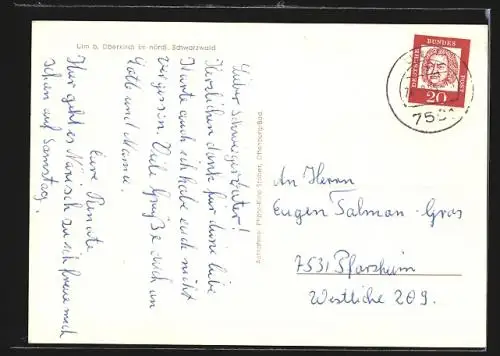 Ulm b. Oberkirch im nördl. Schwarzwald
Lieber Schwiegervater!
Herzlichen Dank für deine liebe
Karte auch ich habe euch nicht
vergessen. Viele Grüße auch an
Gotte und Mama.
Eure Renate
Hier geht es Närrisch zu ich freue mich
schon auf Samstag.
Aufnahme: Photo-Kino Stober, Offenburg/Bad.
DEUTSCHE BUNDES POST
20
75
An Herrn
Eugen Salman-Gros
7531 Pforzheim
Westliche 209.